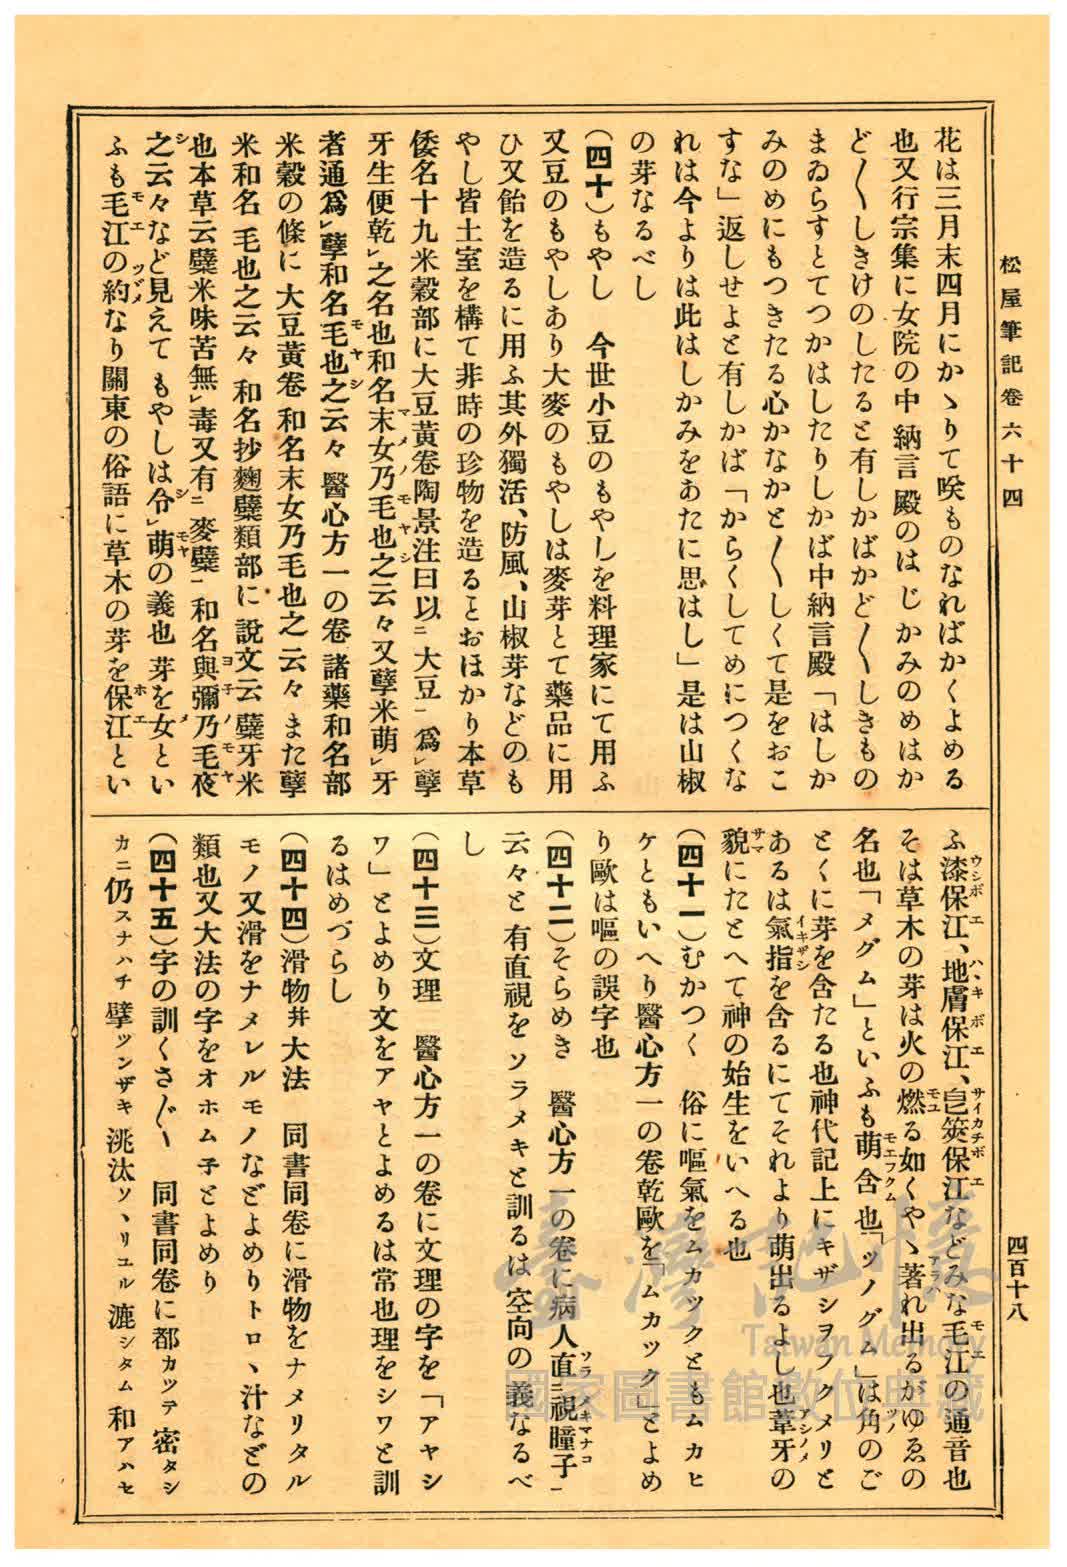 松屋筆記卷六十四
四百十八
花は三月末四月にかゝりて咲ものなればかくよめる
也又行宗集に女院の中納言殿のはじかみのめはか
ど〱しきけのしたると有しかばかど〱しきもの
まゐらすとてつかはしたりしかば中納言殿「はしか
みのめにもつきたる心かなかど〱しくて是をおこ
すな」返しせよと有しかば「からくしてめにつくな
れは今よりは此はしかみをあたに思はし」是は山椒
の芽なるべし
(四十)もやし　今世小豆のもやしを料理家にて用ふ
又豆のもやしあり大麥のもやしは麥芽とて藥品に用
ひ又飴を造るに用ふ其外獨活、防風、山椒芽などのも
やし皆土室を構て非時の珍物を造るとおほかり本草
倭名十九米穀部に大豆黃卷陶景注曰以ニ大豆一爲レ孼
牙生便乾レ之名也和名末女乃毛也之云々又孼米萌レ牙
者通爲レ孼和名毛也之云々醫心方一の卷諸藥和名部
米穀の條に大豆黃卷和名末女乃毛也之云々また孼
米和名毛也之云々和名抄麴糵類部に說文云糵牙米
也本草云糵米味苦無レ毒又有ニ麥糵一和名與彌乃毛夜
之云々など見えてもやしは令レ萌の義也芽を女とい
ふも毛江の約なり關東の俗語に草木の芽を保江とい
ふ漆保江、地膚保江、皀筴保江などみな毛江の通音也
そは草木の芽は火の燃る如くやゝ著れ出るがゆゑの
名也「メグム」といふも萌含也「ツノグム」は角のご
とくに芽を含たる也神代記上にキザシヲフクメリと
あるは氣指を含るにてそれより萌出るよし也葦牙の
貌にたとへて神の始生をいへる也
(四十一)むかつく　俗に嘔氣をムカツクともムカヒ
ケともいへり醫心方一の卷乾歐を「ムカツク」とよめ
り歐は嘔の誤字也
(四十二)そらめき　醫心方一の卷に病人直ニ視瞳子一
云々と有直視をソラメキと訓るは空向の義なるべ
し
(四十三)文理　醫心方一の卷に文理の字を「アヤシ
ワ」とよめり文をアヤとよめるは常也理をシワと訓
るはめづらし
(四十四)滑物幷大法　同書同卷に滑物をナメリタル
モノ又滑をナメレルモノなどよめりトロヽ汁などの
類也又大法の字をオホム子とよめり
(四十五)字の訓くさ〲　同書同卷に都カツテ 密タシ
カニ 仍スナハチ 擘ツンザキ 洮汰ソヽリユル 漉シタム 和アハセ
臺灣記憶
Taiwan Memory
國家圖書館數位典藏